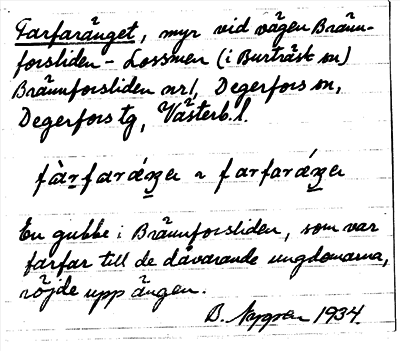 Farfaränget, myr vid vägen Brännforsliden - Lossmen (i Burträsk sn)
Brännforsliden nr 1, Degerfors sn,
Degerfors tg, Västerb. l.
En gubbe i Brännforsliden, som var
farfar till de dåvarande ungdomarna,
röjde upp ängen.
B. Nygren 1934.